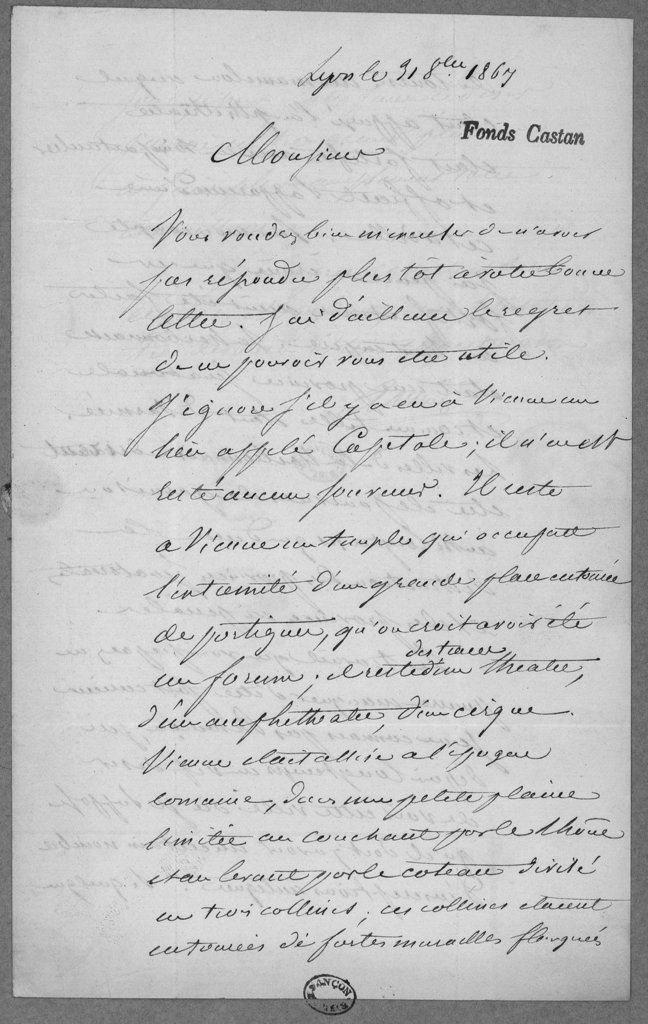 Lyon le 31 8bre 1867
Fonds Castan
Monsieur
Vous voudrez bien m'excuser de n'avoir
pas répondu plus tôt à votre bonne
lettre. J'ai d'ailleurs le regret
de ne pouvoir vous être utile.
J'ignore s'il y a eu à Vienne un
lieu appelé Capitole; il n'en est
resté aucun souvenir. Il reste
à Vienne un temple qui occupait
l'extrémité d'une grande place entourée
de portiques, qu'on croit avoir été
un forum; il reste des traces d'un théatre,
d'un amphithéatre, d'un cirque.
Vienne était assise à l'époque
romaine, dans une petite plaine
limitée au couchant par le Rhône
et au levant par le coteau divisé
en trois collines; ces collines étaient
entourées de fortes murailles flanquées
BESANÇON